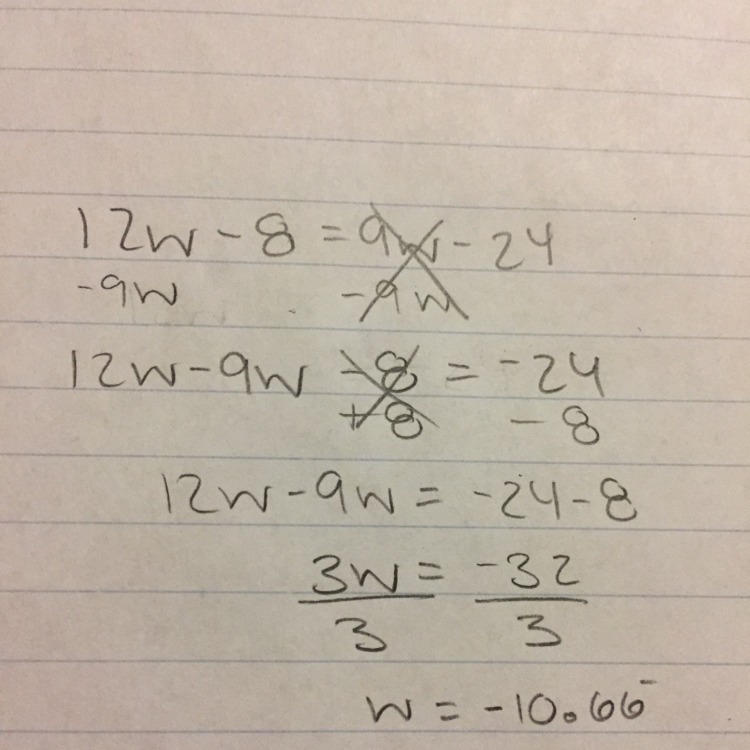 12w - 8 = 9w - 24
-9w -9w
12w - 9w -8 = -24
+8 -8
12w - 9w = -24 - 8
3w = -32
3 3
w = -10.66‾